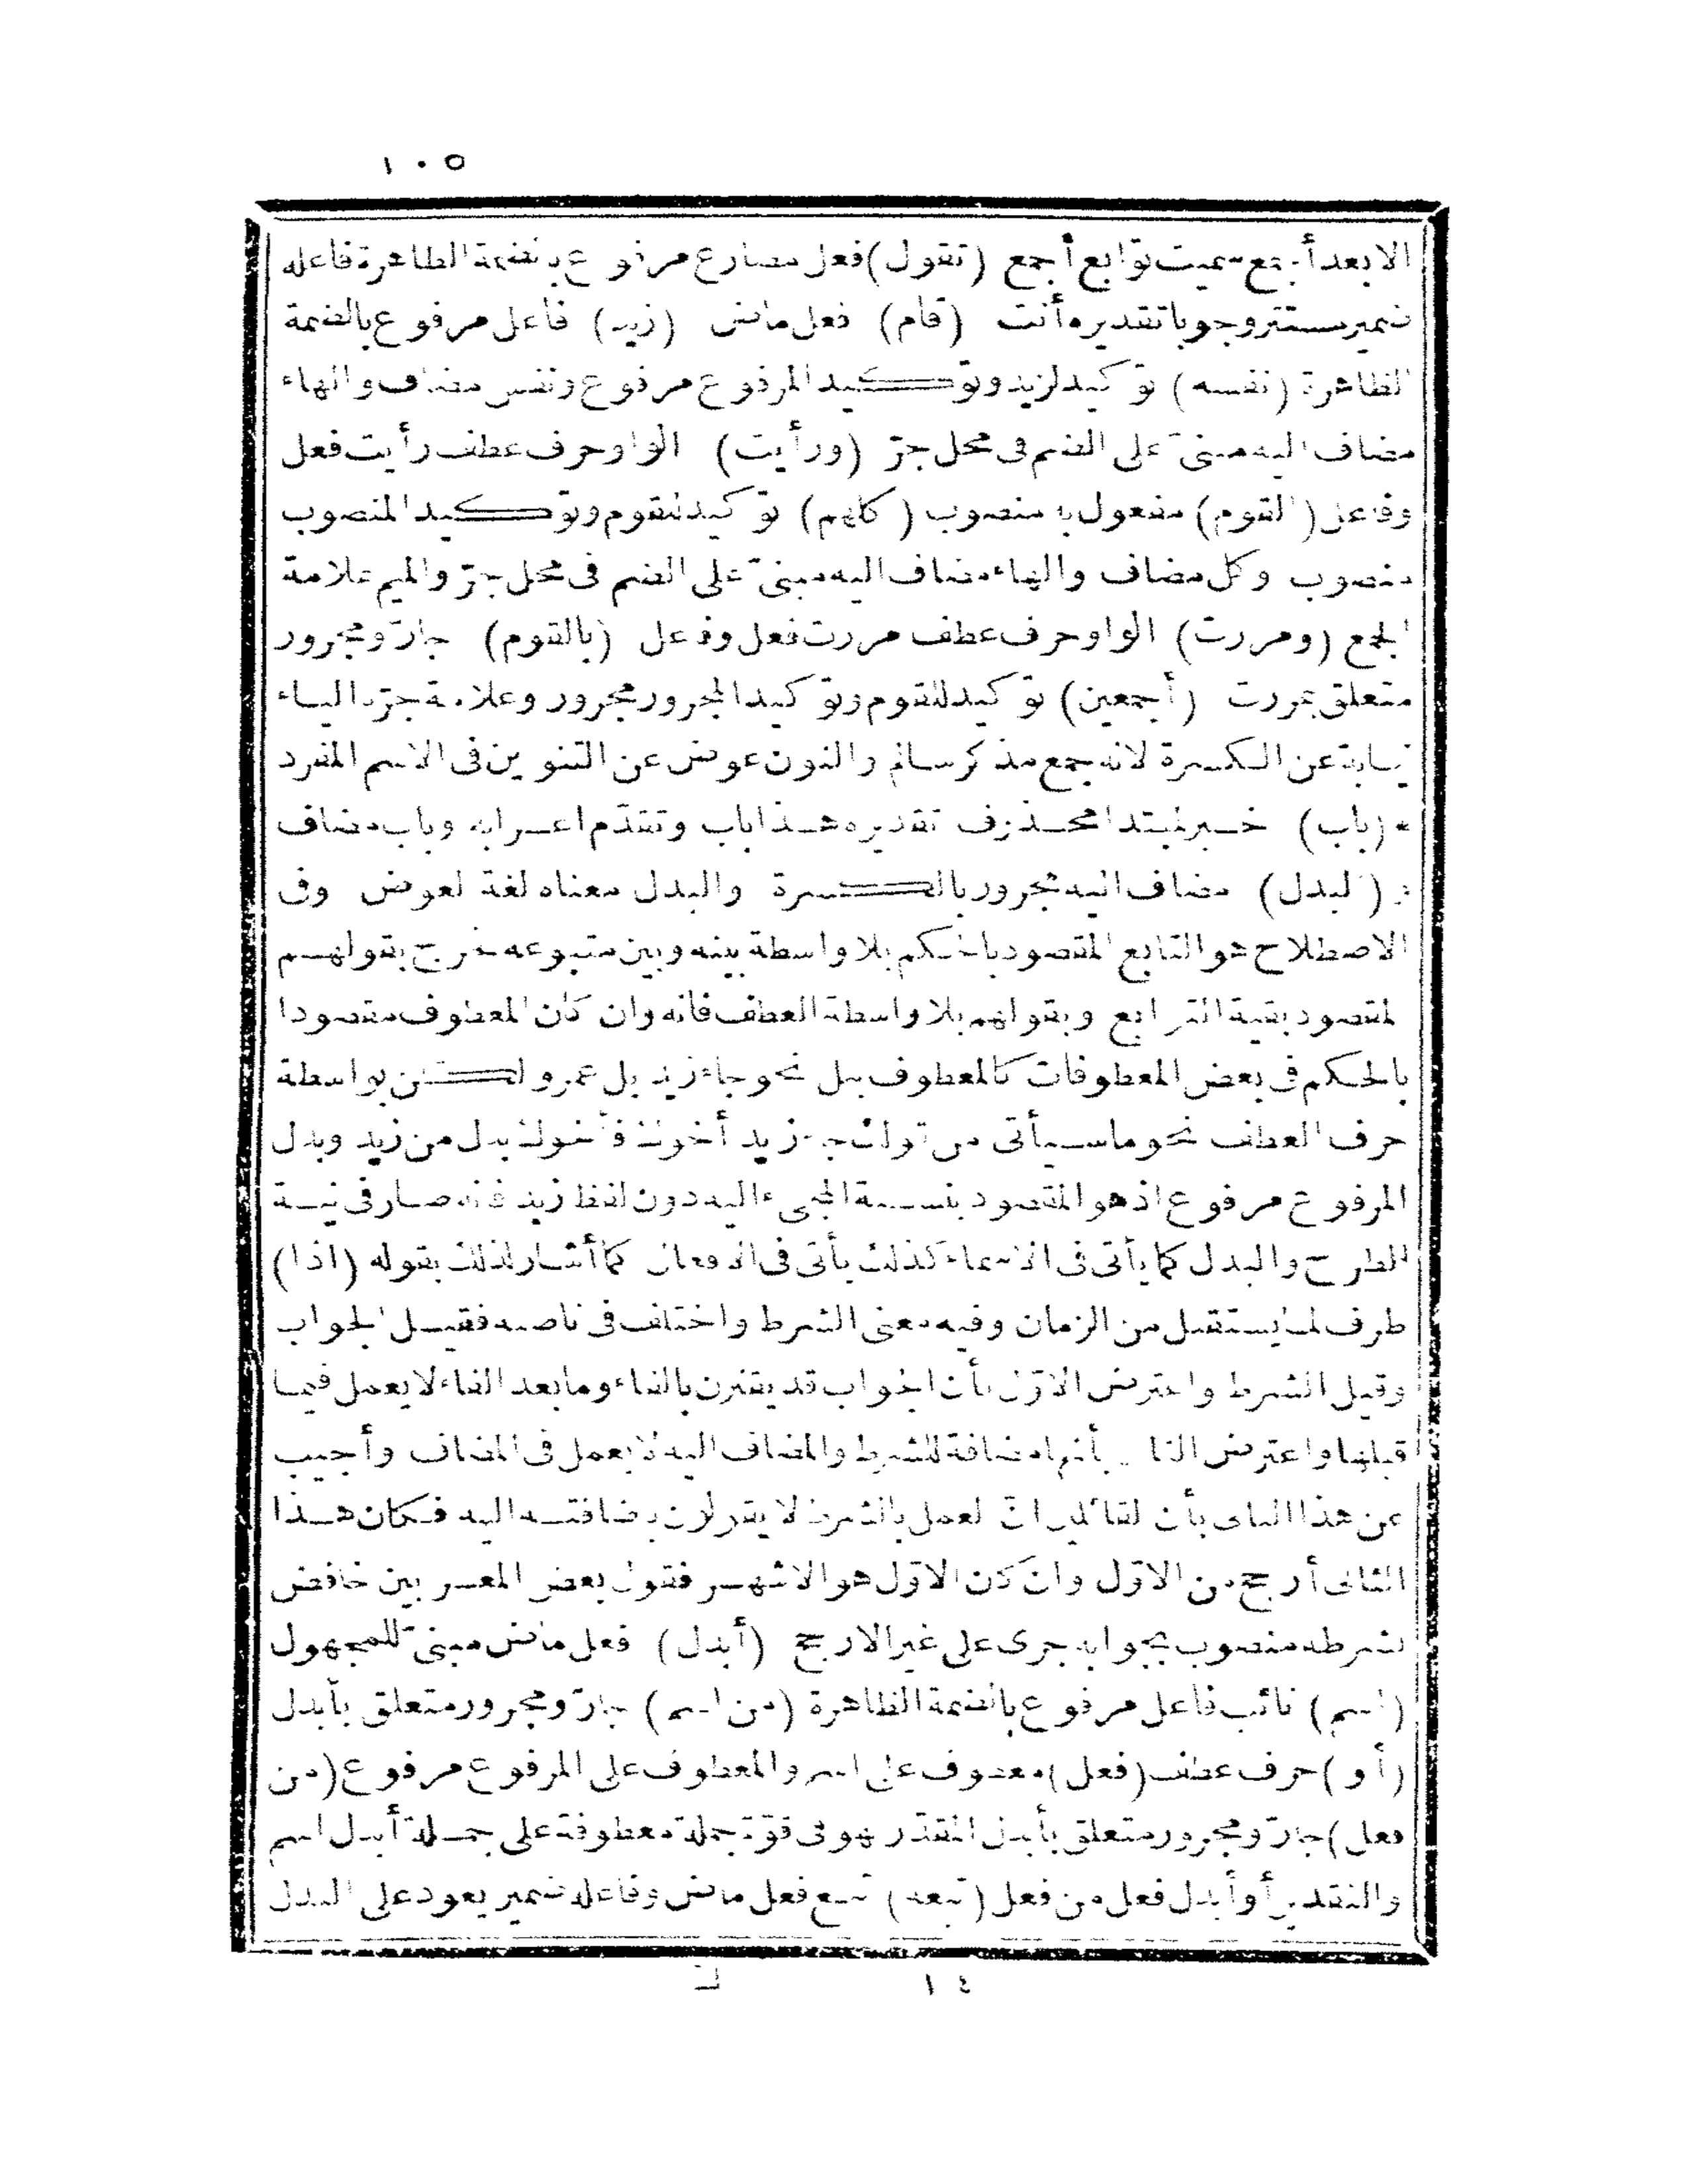 ١٠٥
الا بعد أجمع سميت توابع أجمع (تقول) فعل مضارع مرفوع بالضمة الظاهرة فاعله
ضمير مستتر وجوبا تقديره أنت (قام) فعل ماض (زيد) فاعل مرفوع بالضمة
الظاهرة (نفسه) توكيد لزيد وتوكيد المرفوع مرفوع ونفس مضاف والهاء
مضاف اليه مبنىّ على الضم فى محل جرّ (ورأيت) الواو حرف عطف رأيت فعل
وفاعل (القوم) مفعول به منصوب (كلهم) توكيد للقوم وتوكيد المنصوب
منصوب وكل مضاف والهاء مضاف اليه مبنىّ على الضم فى محل جرّ والميم علامة
الجمع (ومررت) الواو حرف عطف مررت فعل وفاعل (بالقوم) جارّ ومجرور
متعلق بمررت (أجمعين) توكيد للقوم وتوكيد المجرور مجرور وعلامة جرّه الياء
نيابة عن الكسرة لانه جمع مذكر سالم والنون عوض عن التنوين فى الاسم المفرد
* (باب) خبر لمبتدا محذوف تقديره هذا باب وتقدّم اعرابه وباب مضاف
و (البدل) مضاف اليه مجرور بالكسرة والبدل معناه لغة العوض وفى
الاصطلاح هو التابع المقصود بالحكم بلا واسطة بينه وبين متبوعه خرج بقولهم
المقصود بقية التوابع وبقولهم بلا واسطة العطف فانه وان كان المعطوف مقصودا
بالحكم فى بعض المعطوفات كالمعطوف ببل نحو جاء زيد بل عمرو لكن بواسطة
حرف العطف نحو ما سيأتى من قولك جاء زيد أخوك فأخوك بدل من زيد وبدل
المرفوع مرفوع اذ هو المقصود بنسبة المجىء اليه دون لفظ زيد فانه صار فى نية
الطرح والبدل كما يأتى فى الاسماء كذلك يأتى فى الافعال كما أشار لذلك بقوله (اذا)
ظرف لما يستقبل من الزمان وفيه معنى الشرط واختلف فى ناصبه فقيل الجواب
وقيل الشرط واعترض الاوّل بأن الجواب قد يقترن بالفاء وما بعد الفاء لا يعمل فيما
قبلها واعترض الثانى بأنها مضافة للشرط والمضاف اليه لا يعمل فى المضاف وأجيب
عن هذا الثانى بأن القائلين انّ العمل بالشرط لا يقولون باضافته اليه فكان هذا
الثانى أرجح من الاوّل وان كان الاوّل هو الاشهر فقول بعض المعربين خافض
لشرطه منصوب بجوابه جرى على غير الارجح (أبدل) فعل ماض مبنىّ للمجهول
(اسم) نائب فاعل مرفوع بالضمة الظاهرة (من اسم) جارّ ومجرور متعلق بأبدل
(أو) حرف عطف (فعل) معطوف على اسم والمعطوف على المرفوع مرفوع (من
فعل) جارّ ومجرور متعلق بأبدل المقدّر فهو فى قوّة جملة معطوفة على جملة أبدل اسم
والتقدير أو أبدل فعل من فعل (تبعه) تبع فعل ماض وفاعله ضمير يعود على البدل
١٤